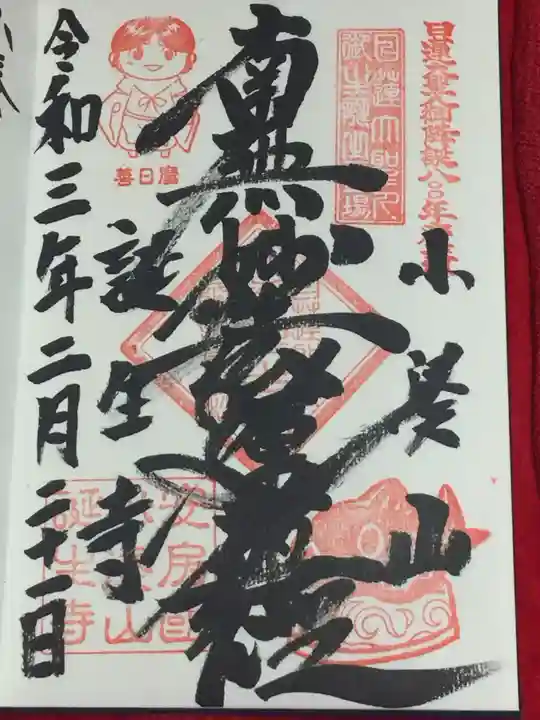 日蓮大聖人御降誕八〇〇年慶讃
小湊山
日蓮大聖人
御生誕之霊場
南無妙法蓮華経
善日麿
誕生寺
安房国
小湊山
誕生寺
令和三年二月二十一日